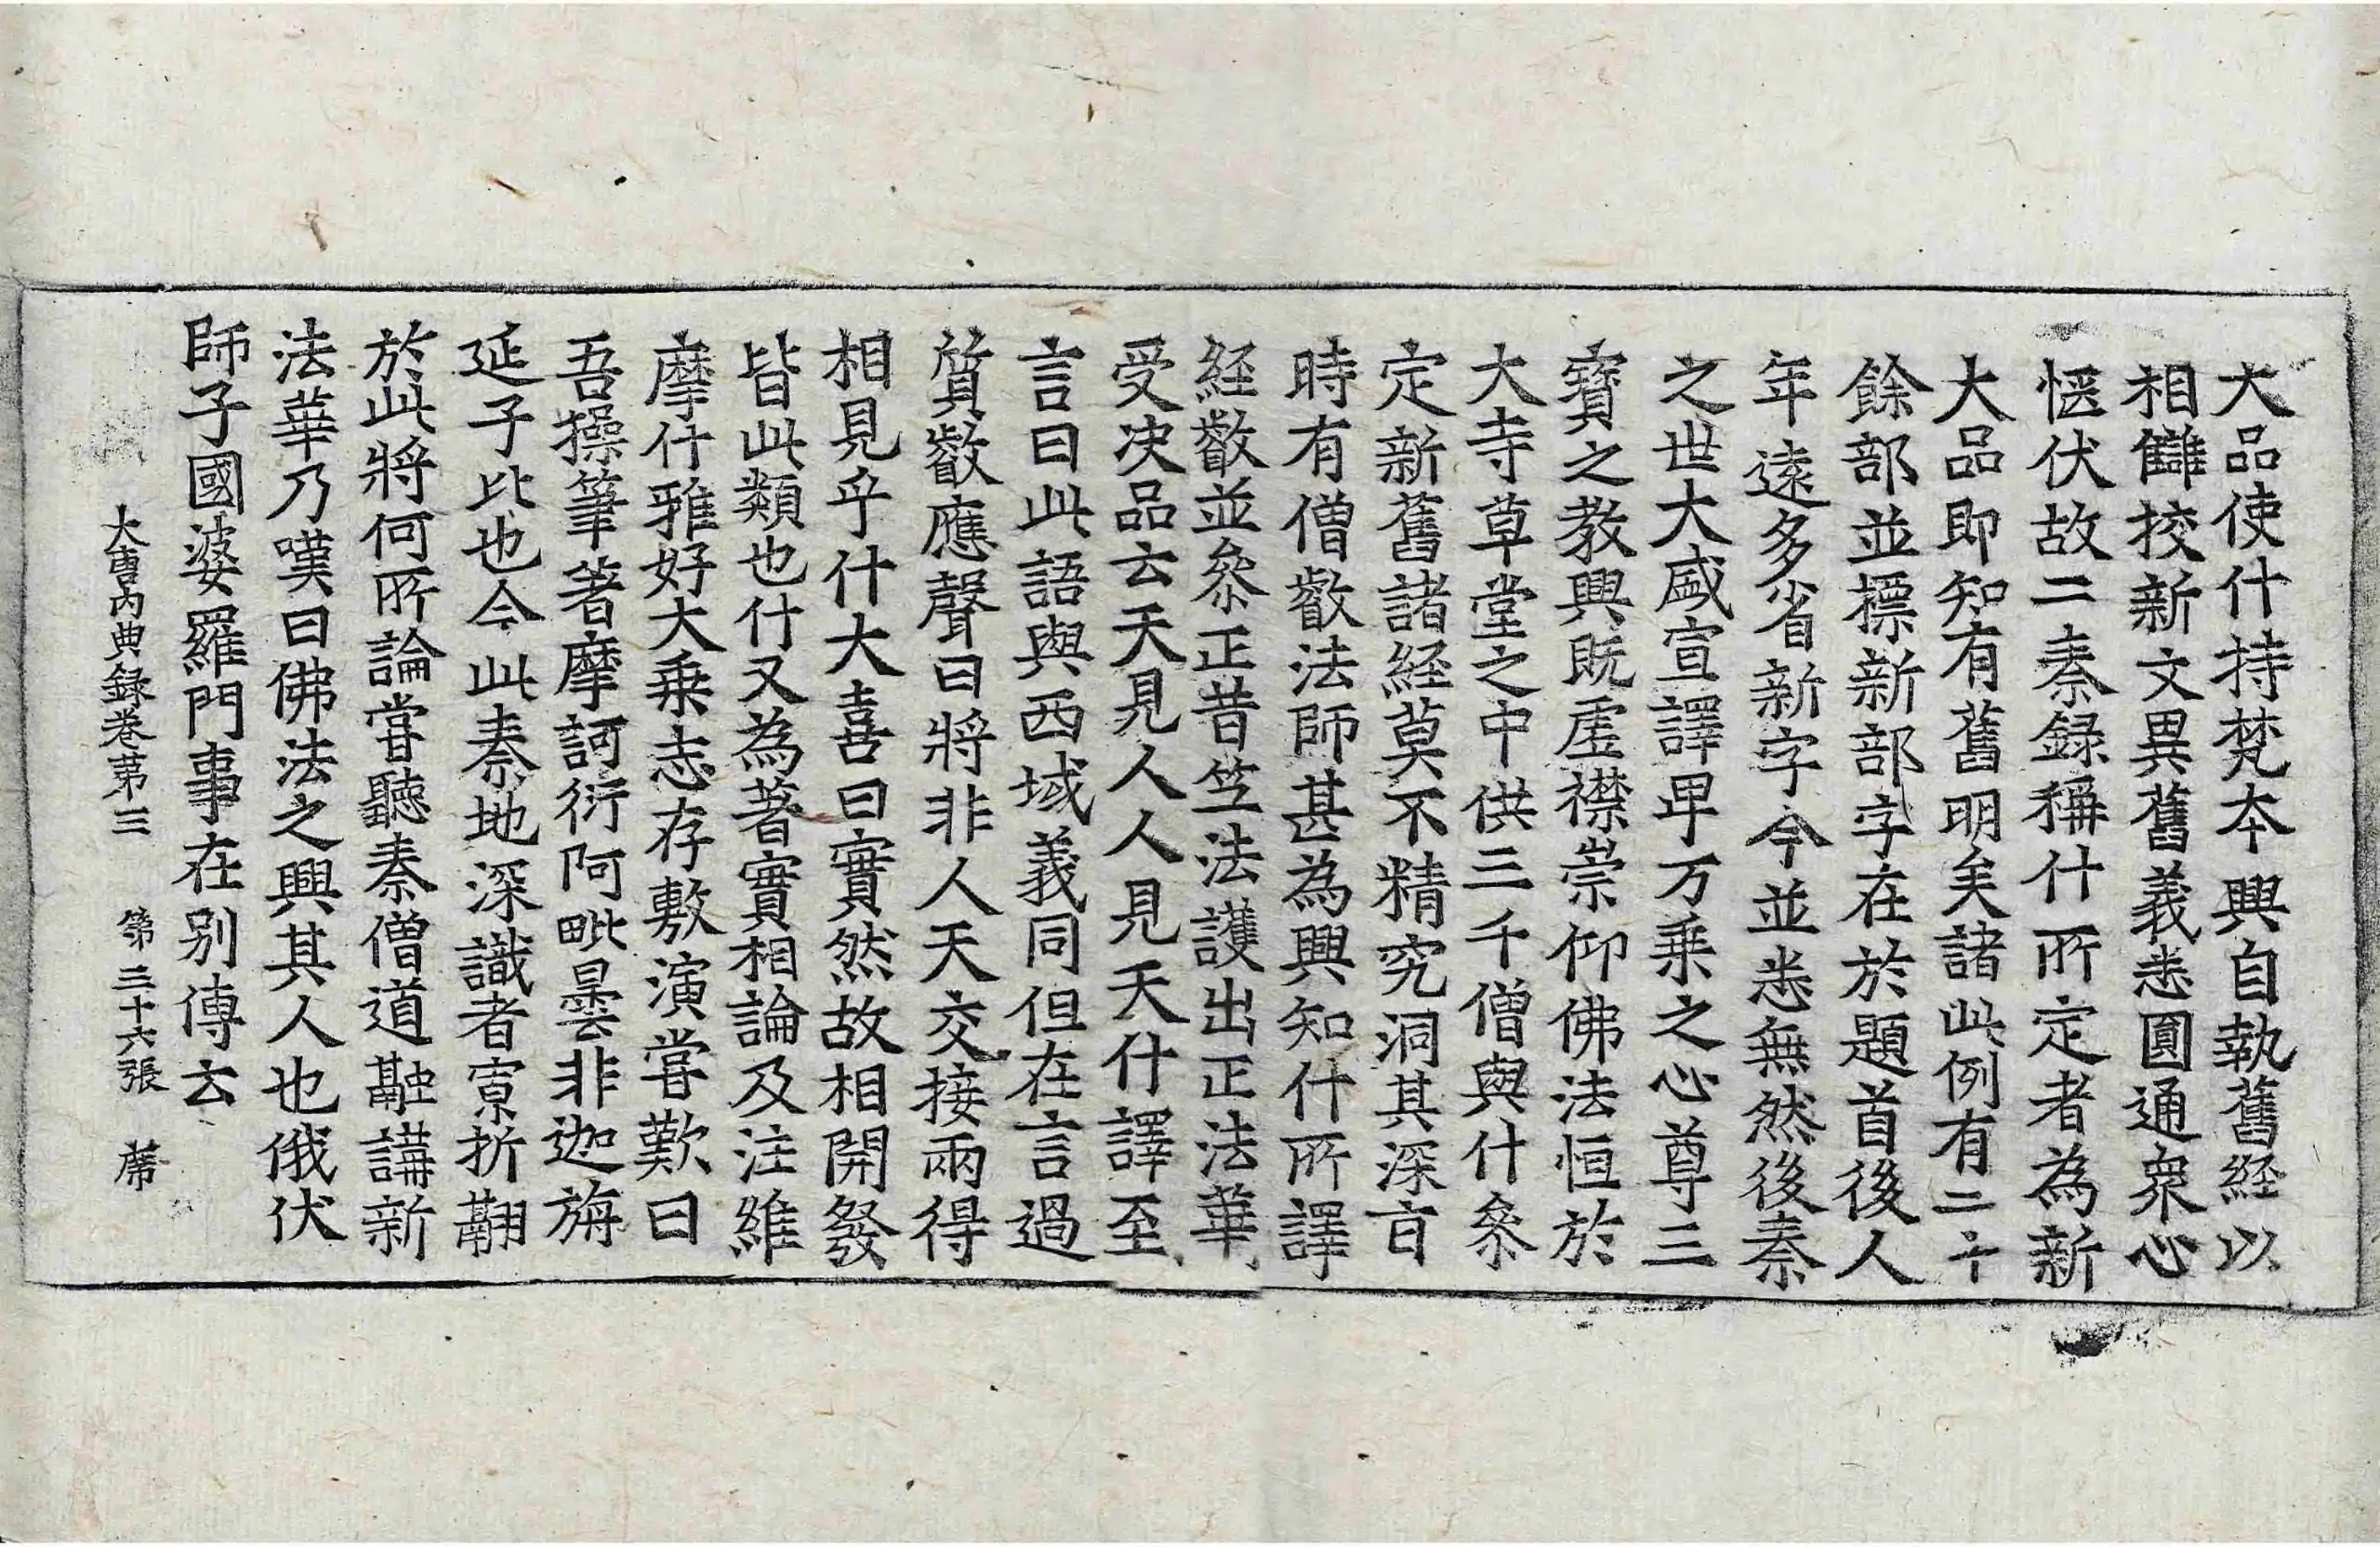 大品使什持梵本興自執舊經以
相讎挍新文異舊義悉圓通衆心
惬伏故二秦録稱什所定者為新
大品即知有舊明矣諸此例有二十
餘部並標新部字在於題首後人
年遠多省新字今並悉無然後秦
之世大盛宣譯甲万乗之心尊三
寶之教興既虚襟崇仰佛法恒於
大寺草堂之中供三千僧與什叅
定新舊諸經莫不精究洞其深㫖
時有僧叡法師甚為興知什所譯
経叡並叅正昔竺法護出正法華
受决品云天見人人見天什譯至
言曰此語與西域義同但在言過
質叡應聲曰將非人天交接兩得
相見乎什大喜曰實然故相開發
皆此類也什又為著實相論及注維
摩什雅好大乗志存敷演嘗歎曰
吾操筆著摩訶衍阿毗曇非迦旃
延子比也今此秦地深識者寡折翮
於此將何所論甞聽秦僧道融講新
法華乃嘆曰佛法之興其人也俄伏
師子國婆羅門事在别傳云
大唐内典録卷苐三 第三十六張 席